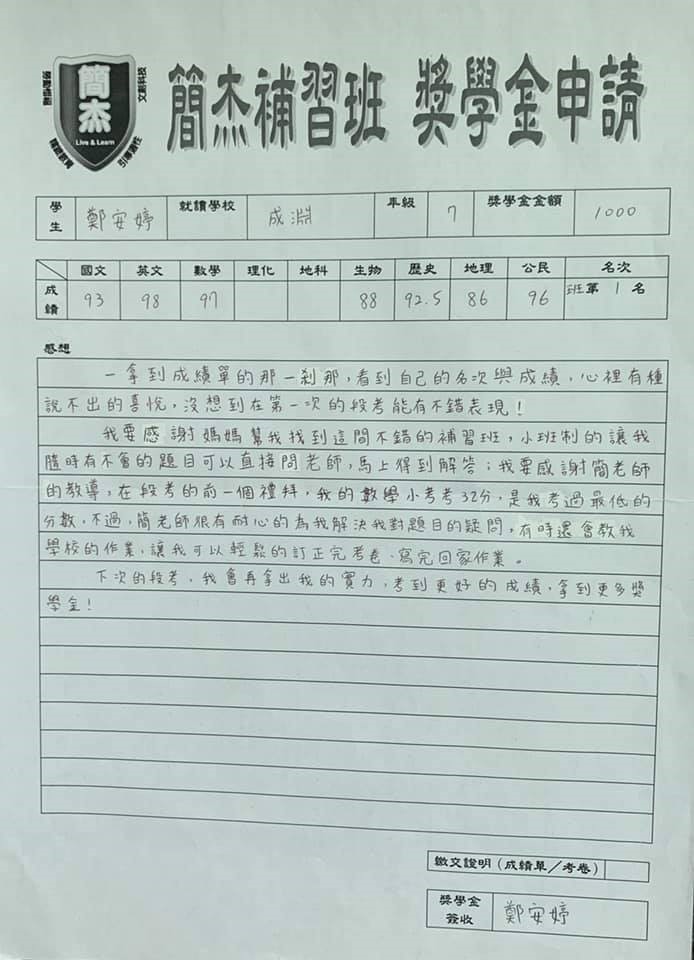 簡杰
Live & Learn
引導適性
簡杰補習班 獎學金申請
學生 鄭安婷 就讀學校 成淵 年級 7 獎學金金額 1000
國文 英文 數學 理化 地科 生物 歷史 地理 公民 名次
成績 93 98 97 88 92.5 86 96 班第 1 名
感想
一拿到成績單的那一剎那,看到自己的名次與成績,心裡有種
說不出的喜悅,沒想到在第一次的段考能有不錯表現!
我要感謝媽媽幫我找到這間不錯的補習班,小班制的讓我
隨時有不會的題目可以直接問老師,馬上得到解答;我要感謝簡老師
的教導,在段考的前一個禮拜,我的數學小考考32分,是我考過最低的
分數,不過,簡老師很有耐心的為我解決我對題目的疑問,有時還會教我
學校的作業,讓我可以輕鬆的訂正完考卷、寫完回家作業。
下次的段考,我會再拿出我的實力,考到更好的成績,拿到更多獎
學金!
繳交證明(成績單/考卷)
獎學金
簽收 鄭安婷